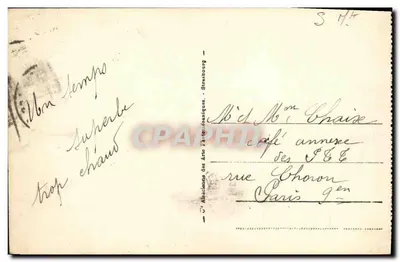 S Mh
Un temps
superbe
trop chaud
Cie Alsacienne des Arts Photomécaniques. - Strasbourg
Mr et Mme Chaix
café annexe
des PTT
rue Choron
Paris 9en
CPAPHIL